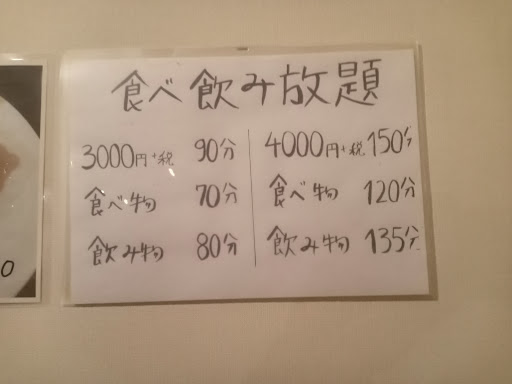 食べ飲み放題
3000円+税 90分
食べ物 70分
飲み物 80分
4000円+税 150分
食べ物 120分
飲み物 135分
0